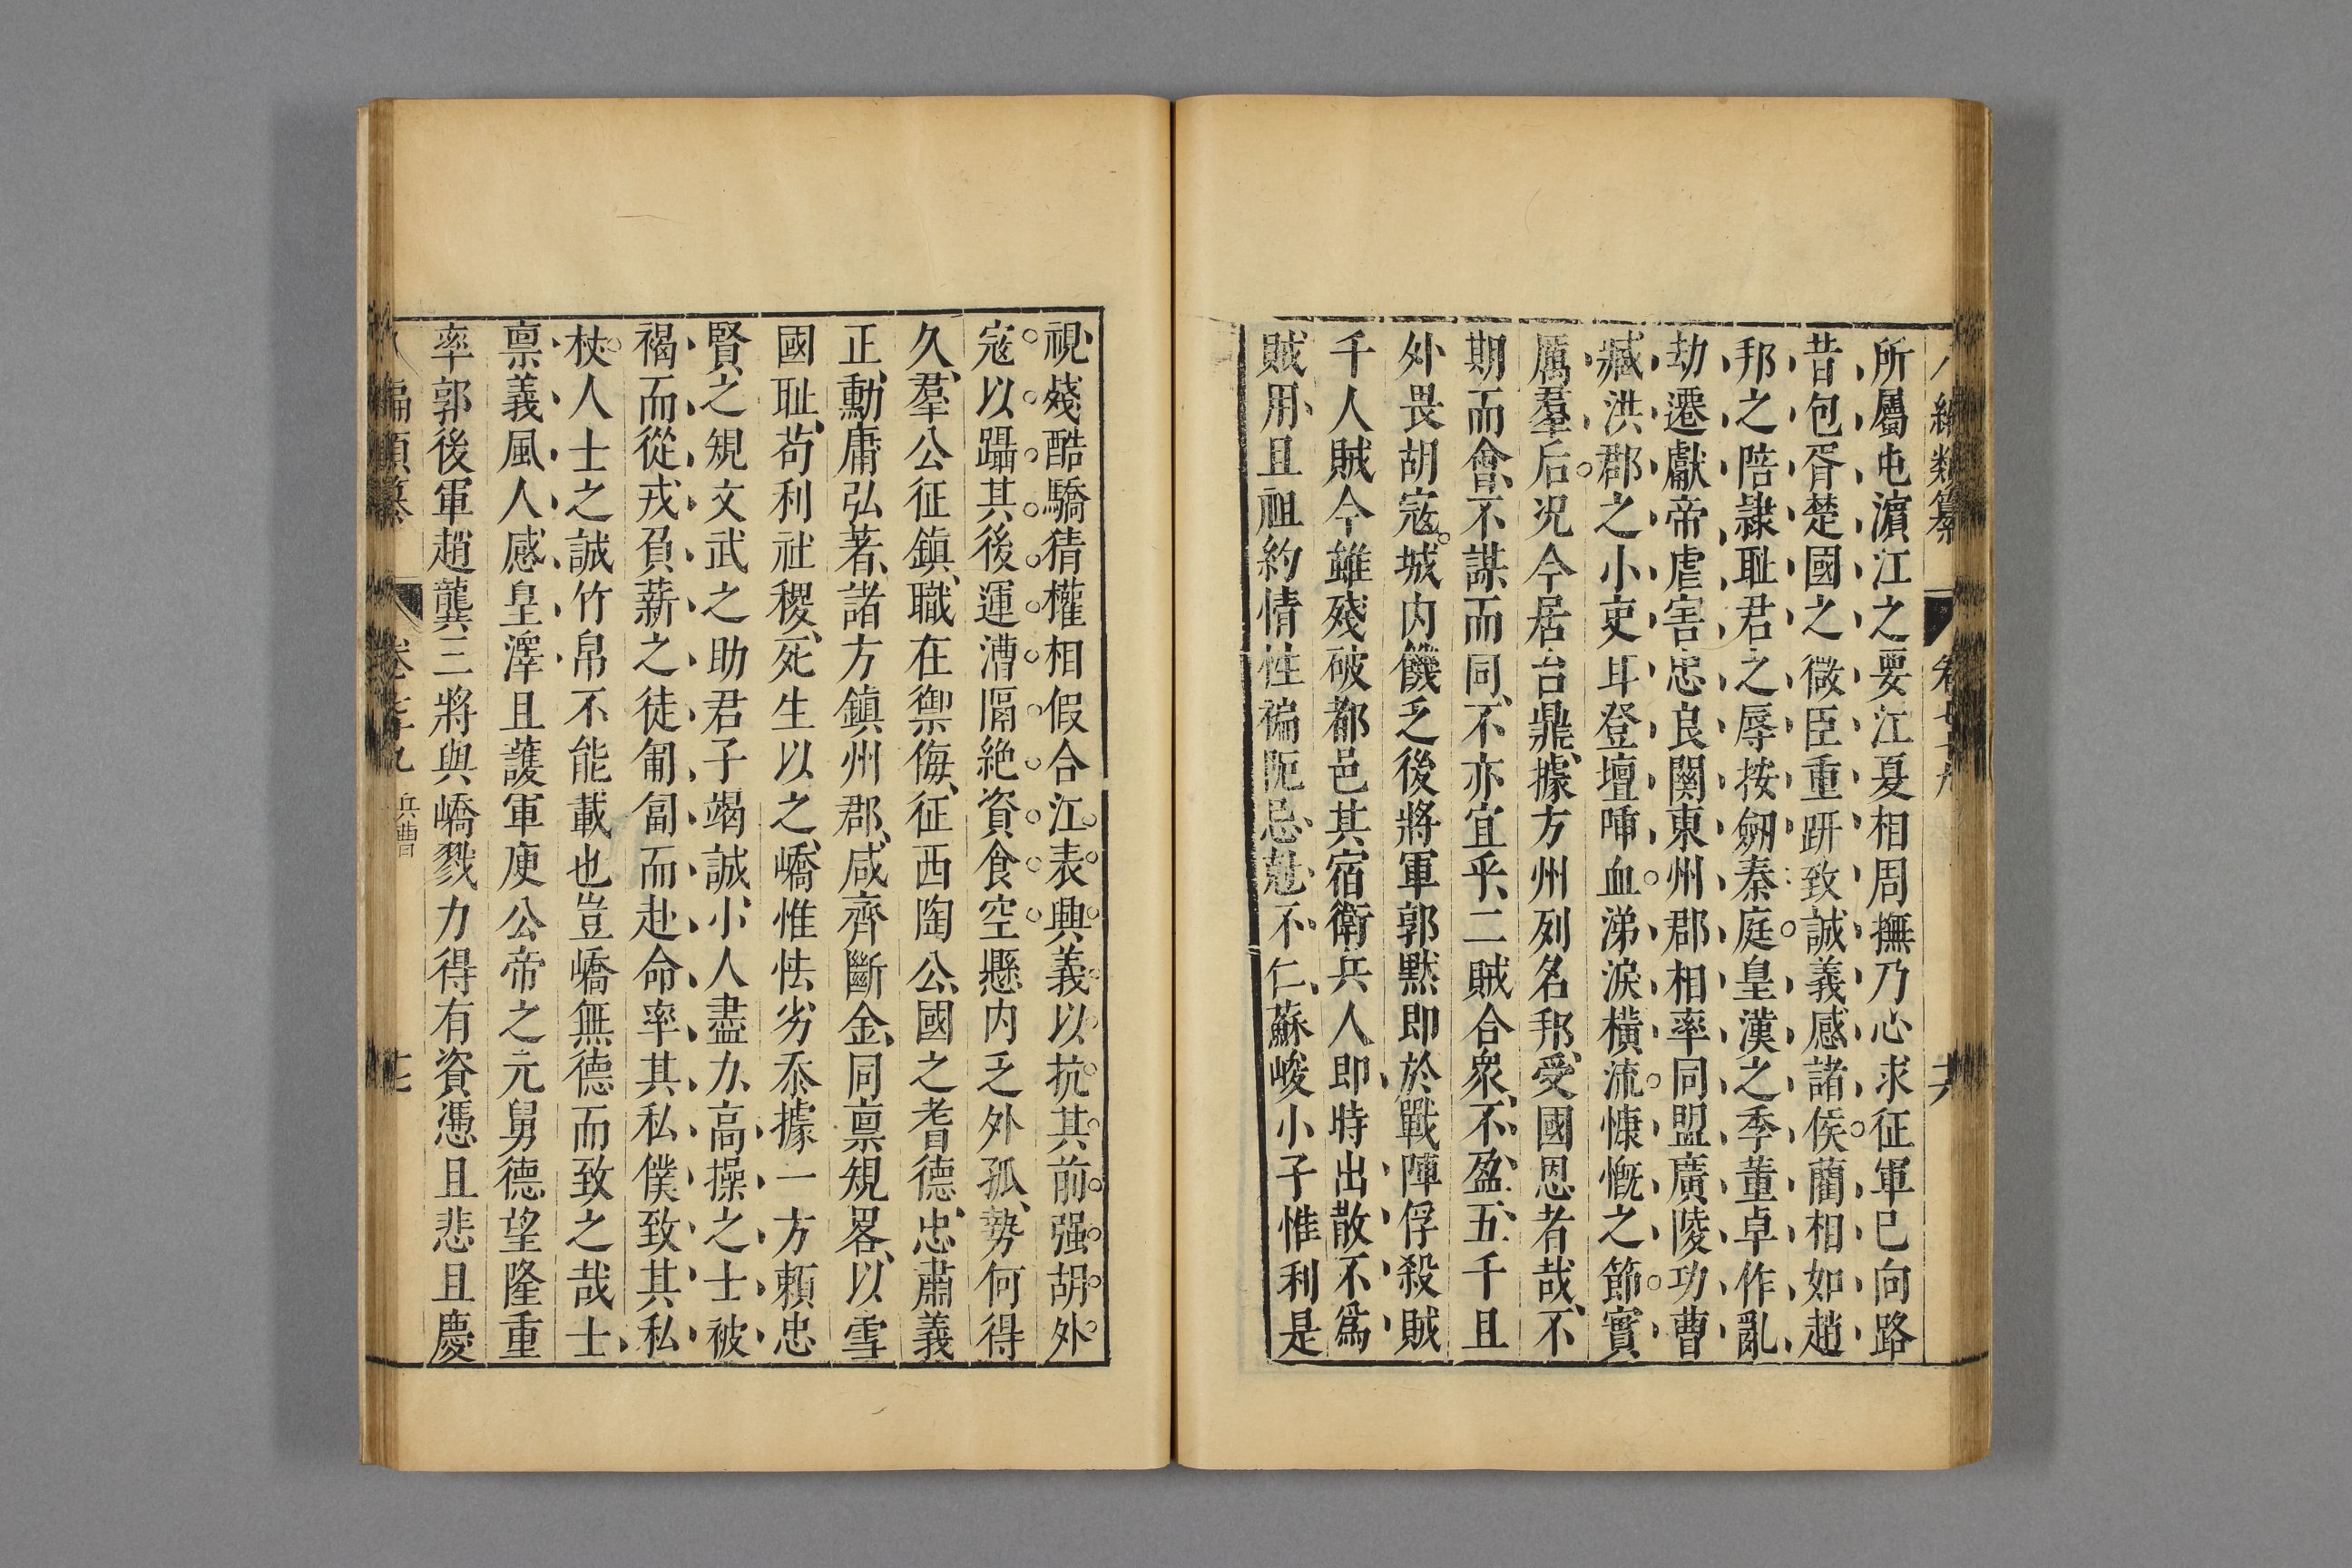 所屬屯濵江之要江夏相周撫乃心求征軍已向路
昔包胥楚國之微臣重趼致誠義感諸侯藺相如趙
邦之陪隷耻君之辱按劒秦庭皇漢之季董卓作亂
劫遷獻帝虐害忠良關東州郡相率同盟廣陵功曹
臧洪郡之小吏耳登壇喢血涕淚橫流慷慨之節實
厲羣后况今居台鼎據方州列名邦受國恩者哉不
期而會不謀而同不亦宜乎二賊合衆不盈五千且
外畏胡寇城内饑乏後將軍郭黙即於戰陣俘殺賊
千人賊今雖殘破都邑其宿衛兵人即時出散不爲
賊用且祖約情性褊阨忌尅不仁蘇峻小子惟利是
視殘酷驕猜權相假合江表興義以抗其前强胡外
寇以躡其後運漕隔絶資食空懸内乏外孤勢何得
久羣公征鎮職在禦侮征西陶公國之耆德忠肅義
正勳庸弘著諸方鎮州郡咸齊斷金同禀規畧以雪
國耻苟利社稷死生以之嶠惟怯劣忝據一方頼忠
賢之規文武之助君子竭誠小人盡力高操之士被
褐而從戎負薪之徒匍匐而赴命率其私僕致其私
杖人士之誠竹帛不能載也豈嶠無德而致之哉士
禀義風人感皇澤且護軍庾公帝之元舅德望隆重
率郭後軍趙龔三將與嶠戮力得有資憑且悲且慶
卷七十九 兵曹
十七